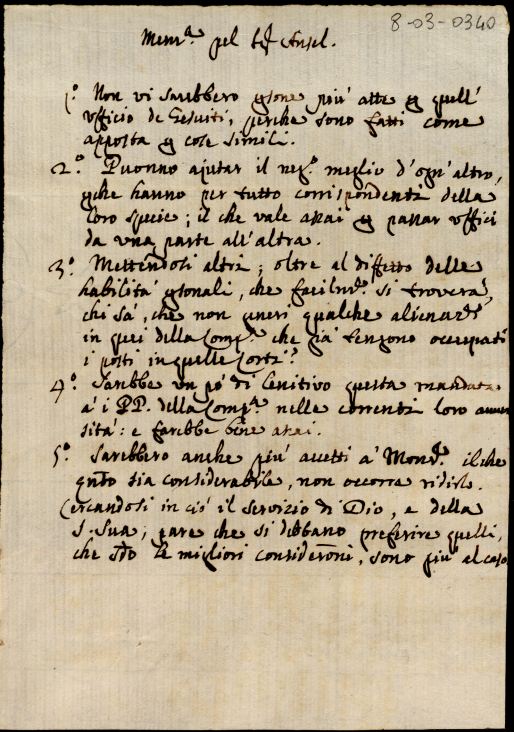 8-03-0340
Mem.ª pel Sig.r Ansel.
1.º Non vi sarebbero p̱sone più atte p̱ quell'
ufficio de Gesuiti, perche sono fatti come
apposta p̱ cose simili.
2.º Puonno ajutar il neg.º meglio d'ogn'altro,
p̱che hanno per tutto corrispondenti della
loro specie; il che vale assai p̱ passar uffici
da una parte all'altra.
3.º Mettendosi altri; oltre al diffetto delle
habilità p̱sonali, che facilm.te si troverà,
chi sà, che non generi qualche alienaz.ne
in quei della Comp.ª che già tengono occupati
i posti in quelle Corti?
4.º Sarebbe un pò di lenitivo questa mandata
à i PP. della Comp.ª nelle correnti loro avver
sità: e farebbe bene assai.
5.º Sarebbero anche più accetti à Mons.r il che
q̃nto sia considerabile, non occorre ridirlo.
Cercandosi in ciò il servizio di Dio, e della
S. Sua; pare che si debbano preferire quelli,
che s̃do le migliori consideroñi, sono più al caso